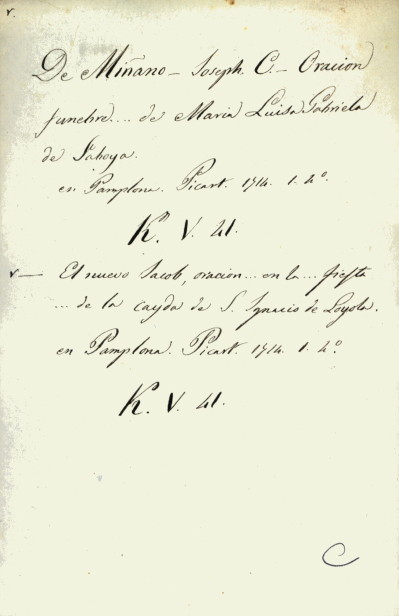 v.
De Miñano - Joseph. C. - Oracion
funebre.... de Maria Luisa Gabriela
de Saboya.
en Pamplona. Picart. 1714. 1. 4º.
K. V. 41.
v — El nuevo Jacob, oracion... en la... fiesta
... de la cayda de S. Ignacio de Loyola.
en Pamplona. Picart. 1714. 1. 4º.
K. V. 41.
C